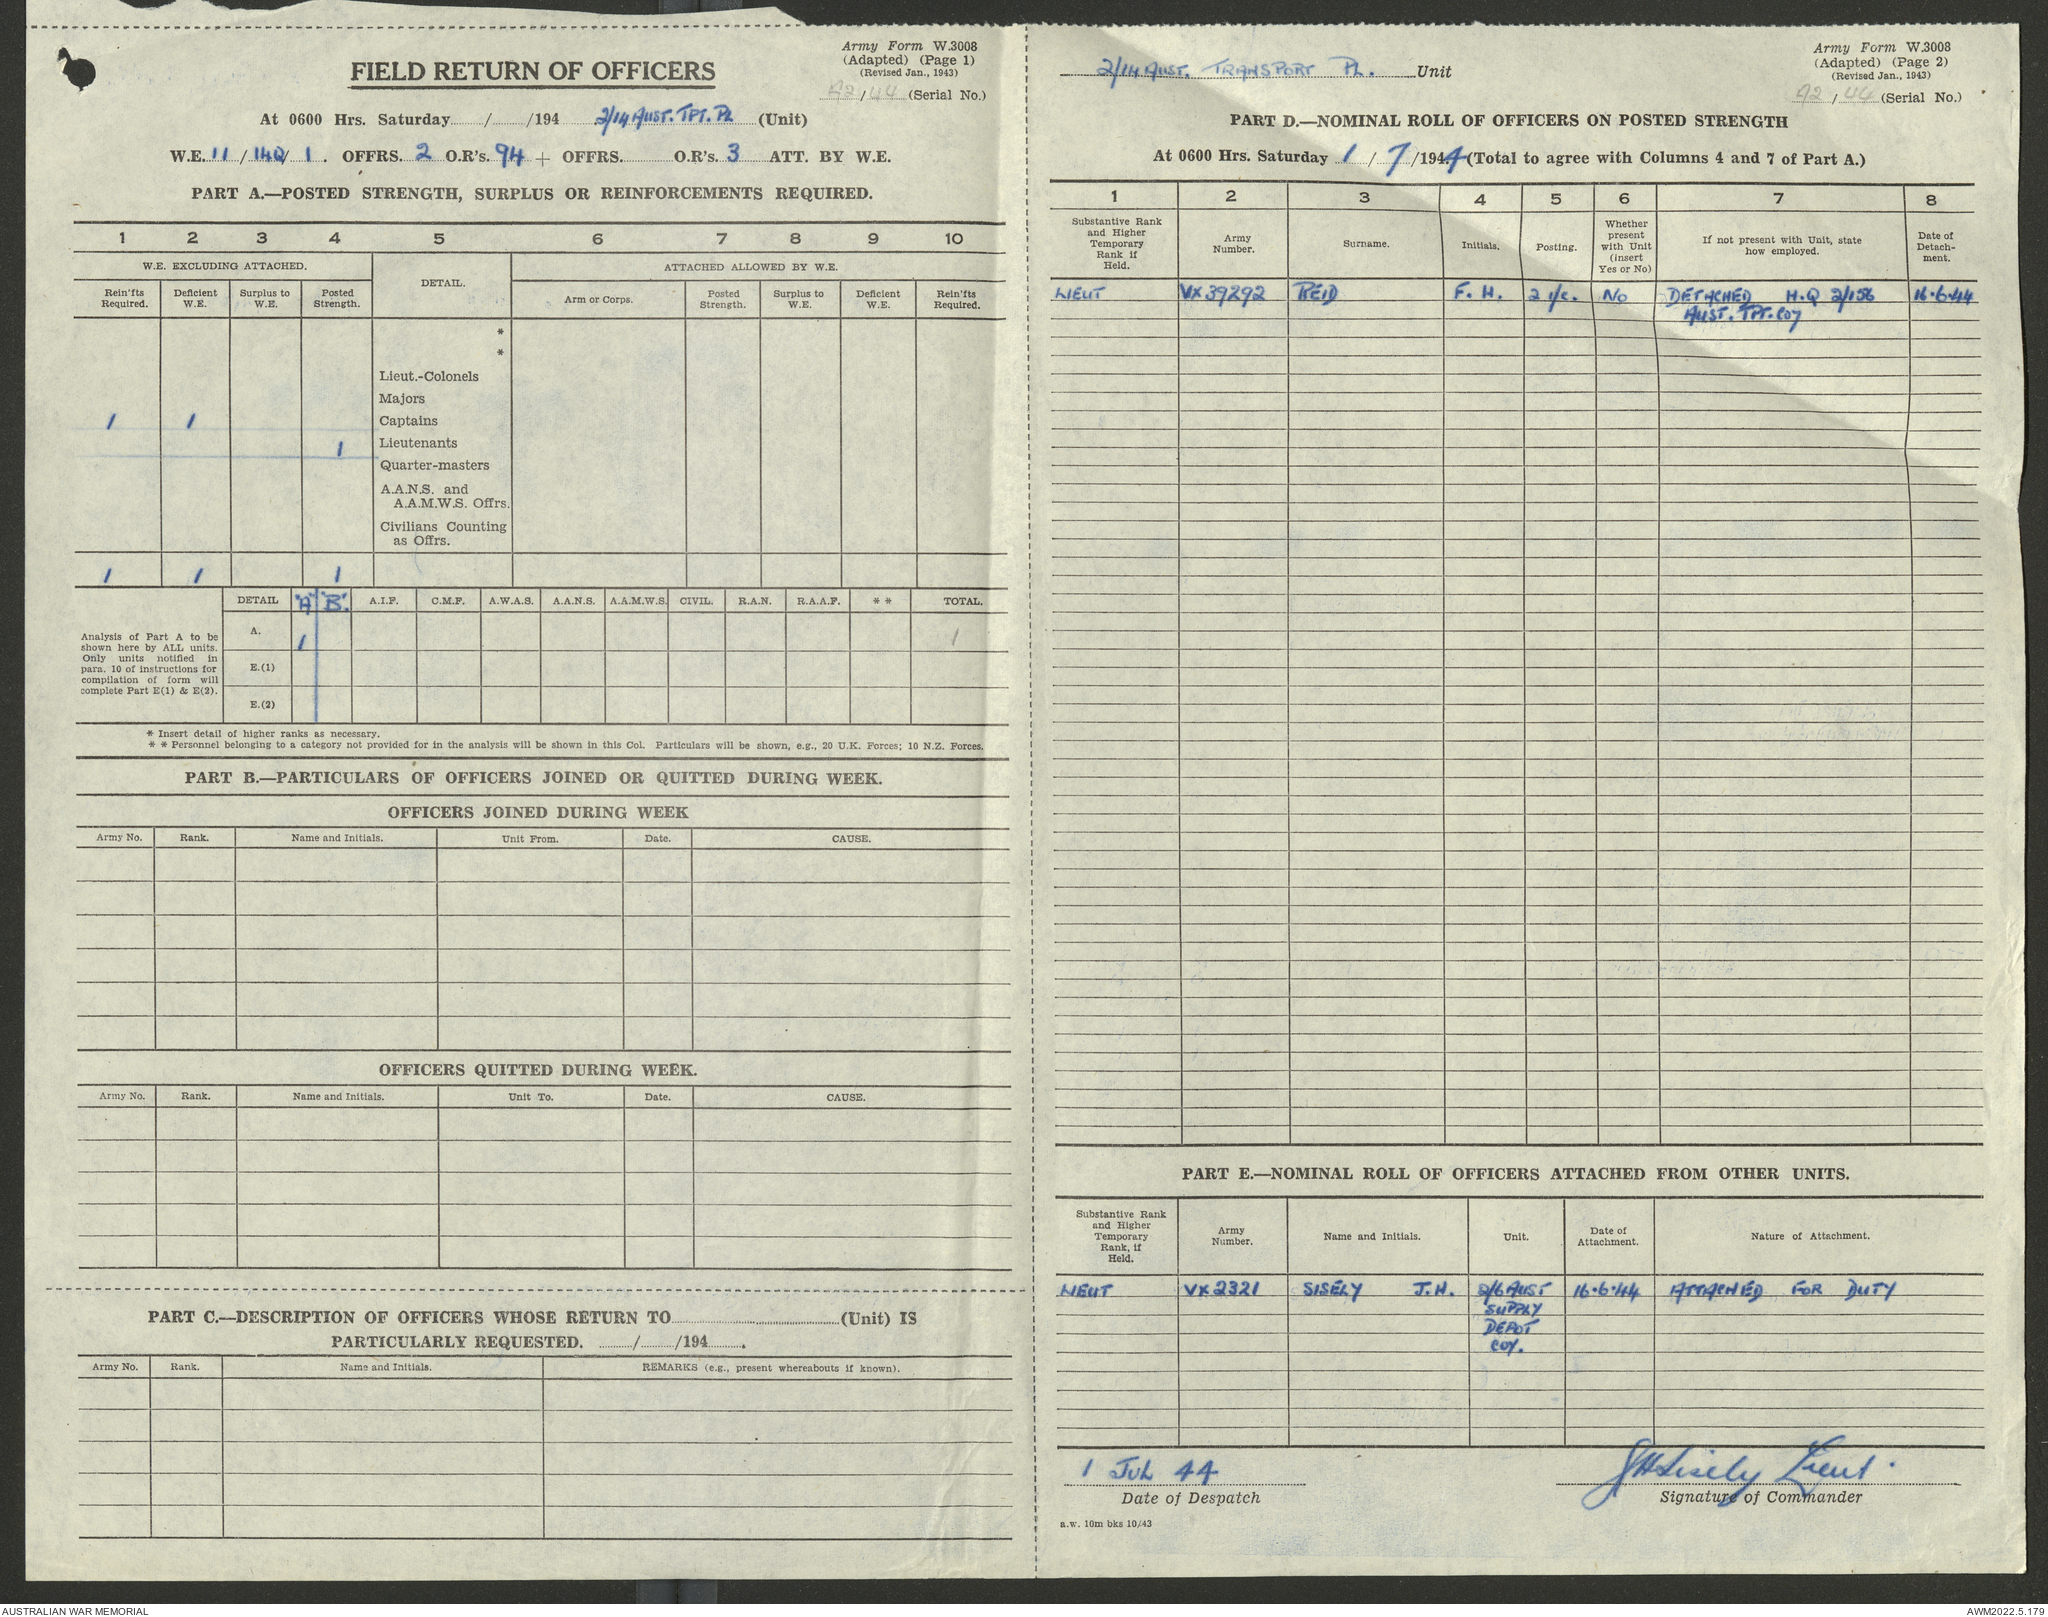 Army Form W.3008
(Adapted) (Page 1)
(Revised Jan., 1943)
42/44 (Serial No.)
FIELD RETURN OF OFFICERS
At 0600 Hrs. Saturday......../......../194 2/14 AUST. TPT. PL (Unit)
W.E. 11/140/1. OFFRS. 2 O.R's. 94 + OFFRS............ O.R's. 3 ATT. BY W.E.
PART A.—POSTED STRENGTH, SURPLUS OR REINFORCEMENTS REQUIRED.
1 2 3 4 5 6 7 8 9 10
W.E. EXCLUDING ATTACHED. DETAIL. ATTACHED ALLOWED BY W.E.
Rein'fts Required. Deficient W.E. Surplus to W.E. Posted Strength. Arm or Corps. Posted Strength. Surplus to W.E. Deficient W.E. Rein'fts Required.
*
*
Lieut.-Colonels
Majors
1 1 Captains
1 Lieutenants
Quarter-masters
A.A.N.S. and
A.A.M.W.S. Offrs.
Civilians Counting
as Offrs.
1 1 1
DETAIL "A" "B". A.I.F. C.M.F. A.W.A.S. A.A.N.S. A.A.M.W.S. CIVIL. R.A.N. R.A.A.F. * * TOTAL.
Analysis of Part A to be
shown here by ALL units.
Only units notified in
para. 10 of instructions for
compilation of form will
complete Part E(1) & E(2).
A. 1 1
E.(1)
E.(2)
* Insert detail of higher ranks as necessary.
* * Personnel belonging to a category not provided for in the analysis will be shown in this Col. Particulars will be shown, e.g., 20 U.K. Forces; 10 N.Z. Forces.
PART B.—PARTICULARS OF OFFICERS JOINED OR QUITTED DURING WEEK.
OFFICERS JOINED DURING WEEK
Army No. Rank. Name and Initials. Unit From. Date. CAUSE.
OFFICERS QUITTED DURING WEEK.
Army No. Rank. Name and Initials. Unit To. Date. CAUSE.
PART C.—DESCRIPTION OF OFFICERS WHOSE RETURN TO........................(Unit) IS
PARTICULARLY REQUESTED. ......../......../194........
Army No. Rank. Name and Initials. REMARKS (e.g., present whereabouts if known).
2/14 AUST. TRANSPORT PL. Unit
Army Form W.3008
(Adapted) (Page 2)
(Revised Jan., 1943)
42/44 (Serial No.)
PART D.—NOMINAL ROLL OF OFFICERS ON POSTED STRENGTH
At 0600 Hrs. Saturday 1/7/1944 (Total to agree with Columns 4 and 7 of Part A.)
1 2 3 4 5 6 7 8
Substantive Rank and Higher Temporary Rank if Held. Army Number. Surname. Initials. Posting. Whether present with Unit (insert Yes or No) If not present with Unit, state how employed. Date of Detach-ment.
LIEUT VX39292 REID F. H. 2 i/c. No DETACHED H.Q 2/156 16.6.44
AUST. TPT. COY
PART E.—NOMINAL ROLL OF OFFICERS ATTACHED FROM OTHER UNITS.
Substantive Rank and Higher Temporary Rank, if Held. Army Number. Name and Initials. Unit. Date of Attachment. Nature of Attachment.
LIEUT VX2321 SISELY J.H. 2/6 AUST 16.6.44 ATTACHED FOR DUTY
SUPPLY
DEPOT
COY.
1 JUL 44
Date of Despatch
JHSisely Lieut.
Signature of Commander
a.w. 10m bks 10/43
AUSTRALIAN WAR MEMORIAL
AWM2022.5.179